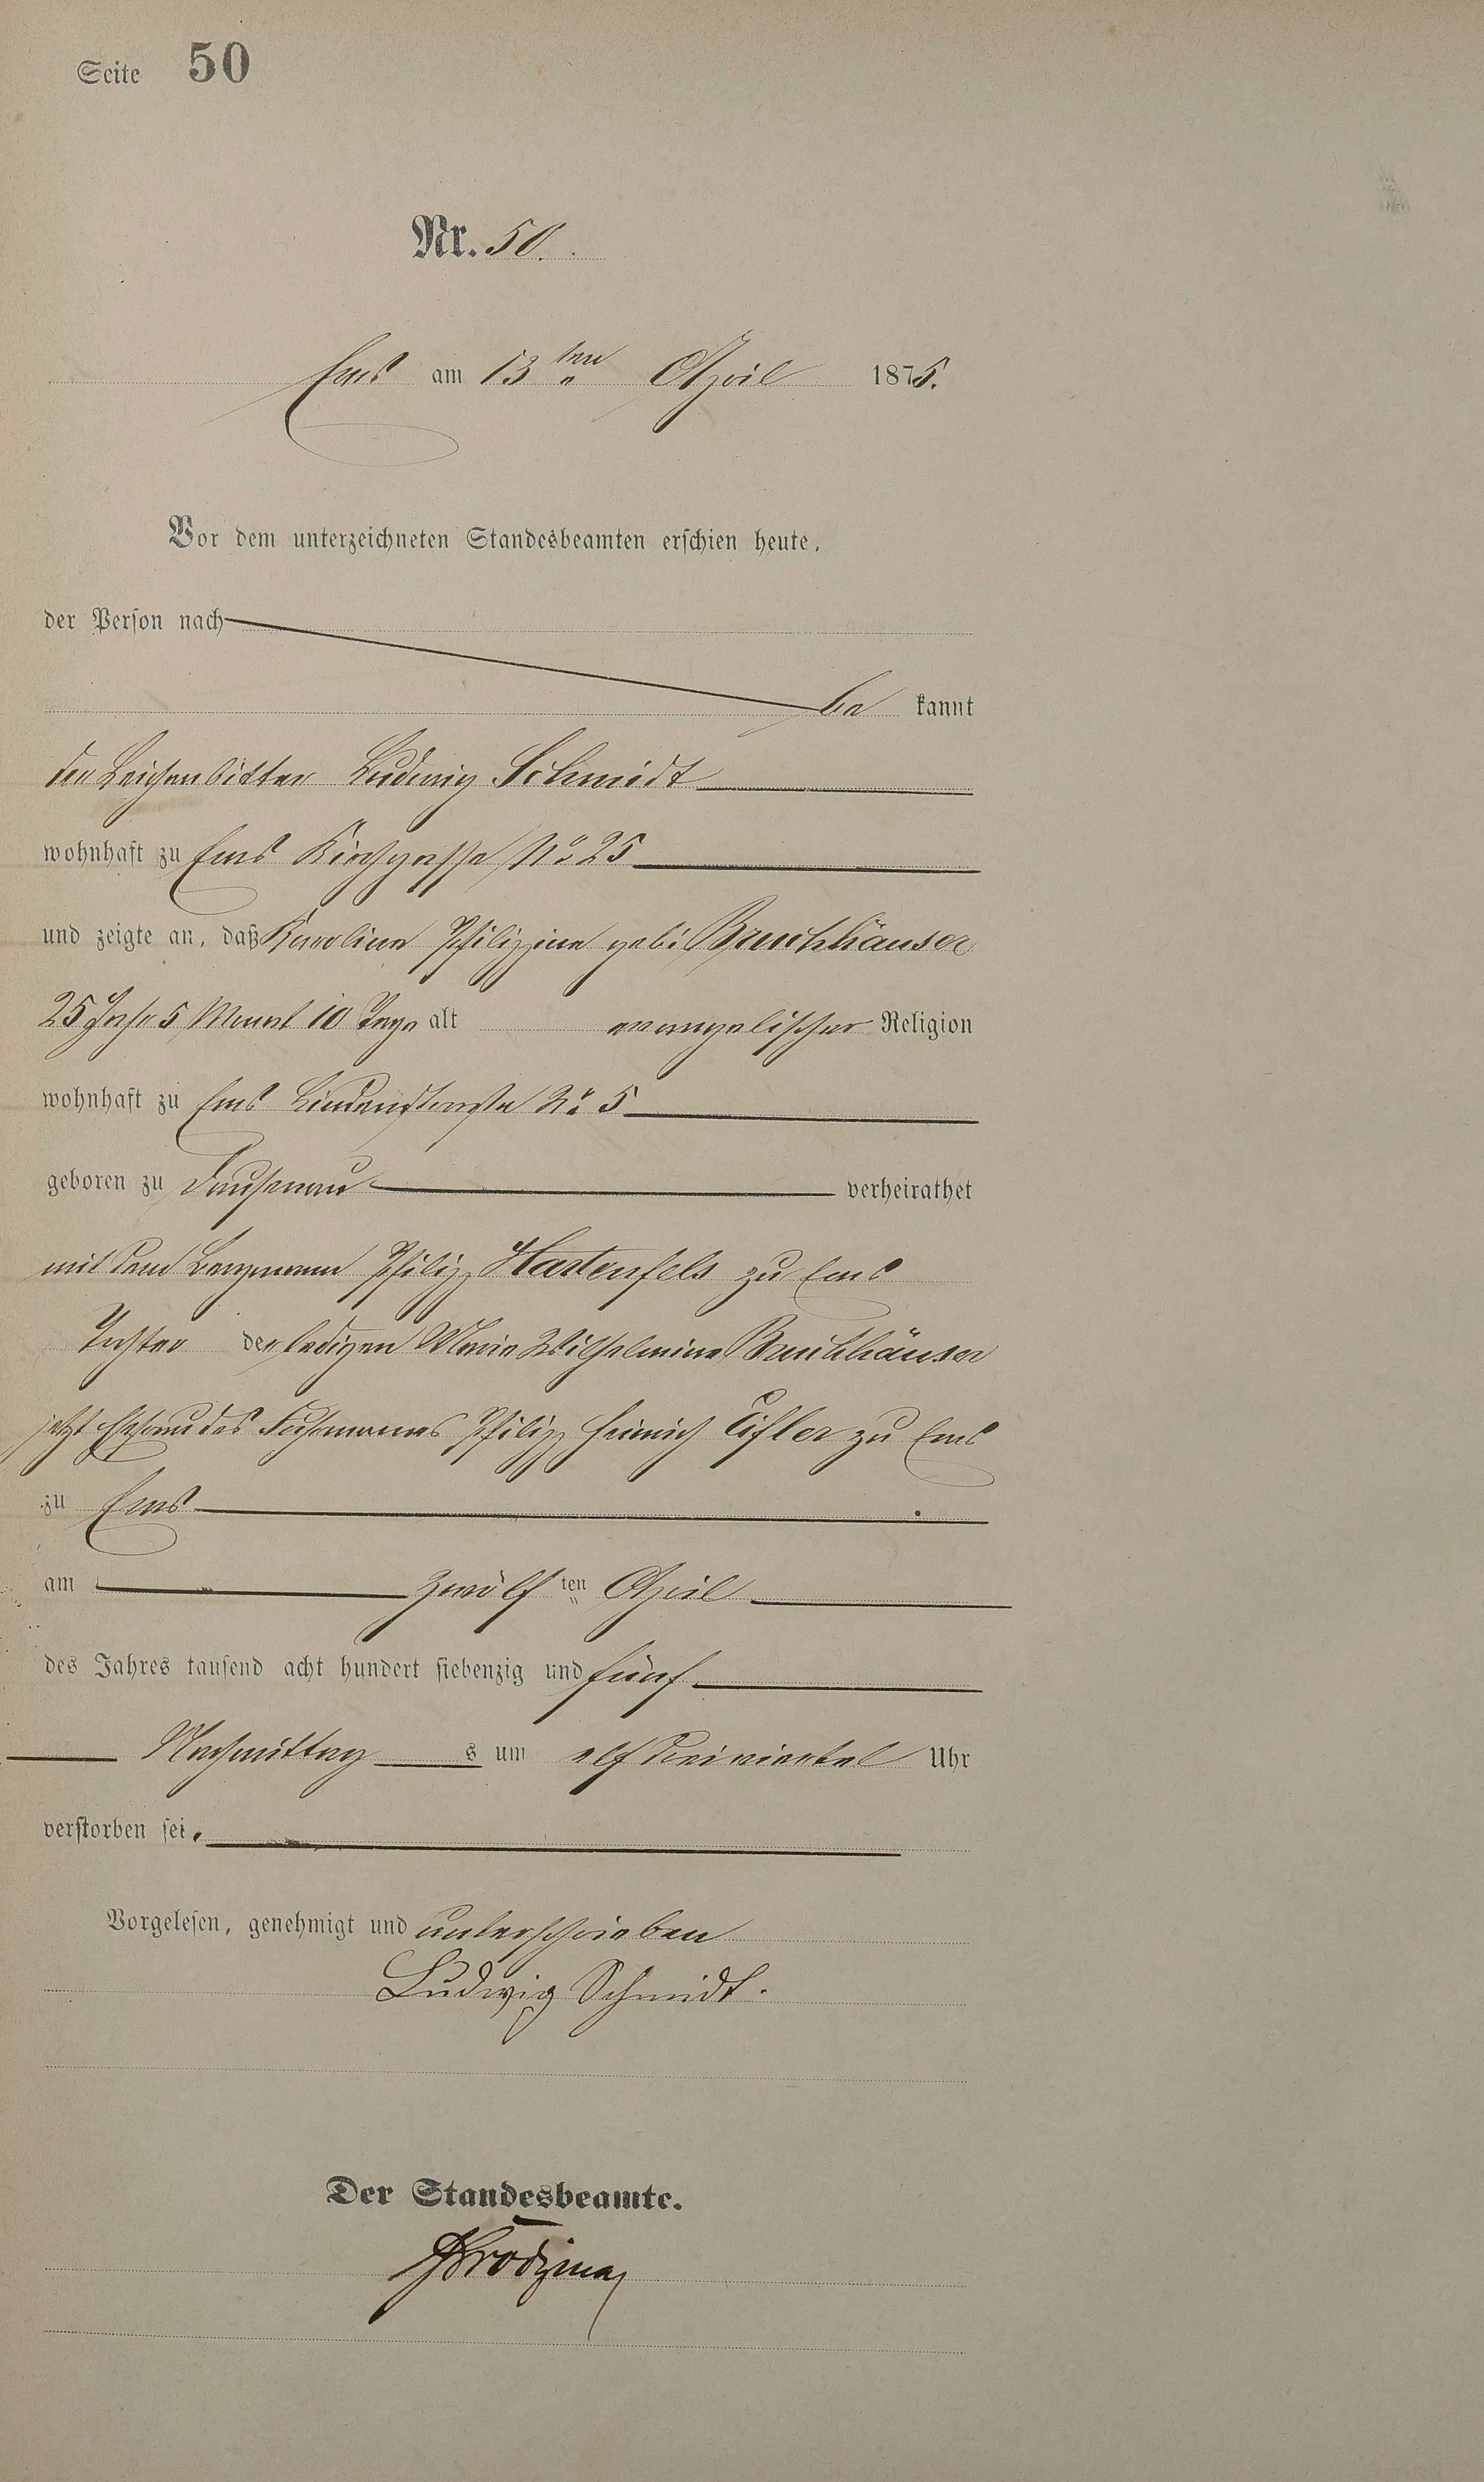 Seite 50
Nr. 50.
Ems am 13ten April 1875.
Vor dem unterzeichneten Standesbeamten erschien heute,
der Person nach
be kannt
der Leichenbitter Ludwig Schmidt
wohnhaft zu Ems Kirchgasse No 25
und zeigte an, daß Karoline Philippine geb: Bruchhäuser
25 Jahr 5 Monat 10 Tage alt evangelischer Religion
wohnhaft zu Ems Lindenstrasse No 5
geboren zu Dausenau verheirathet
mit dem Bergmann Philipp Hartenfels zu Ems
Tochter der ledigen Maria Wilhelmine Bruchhäuser
jetzt Ehefrau des Fuhrmannes Philipp Heinrich zu Ems
zu Ems
am zwölf ten April
des Jahres tausend acht hundert siebenzig und fünf
Nachmittag s um elf dreiviertel Uhr
verstorben sei.
Vorgelesen, genehmigt und unterschrieben
Ludwig Schmidt.
Der Standesbeamte.